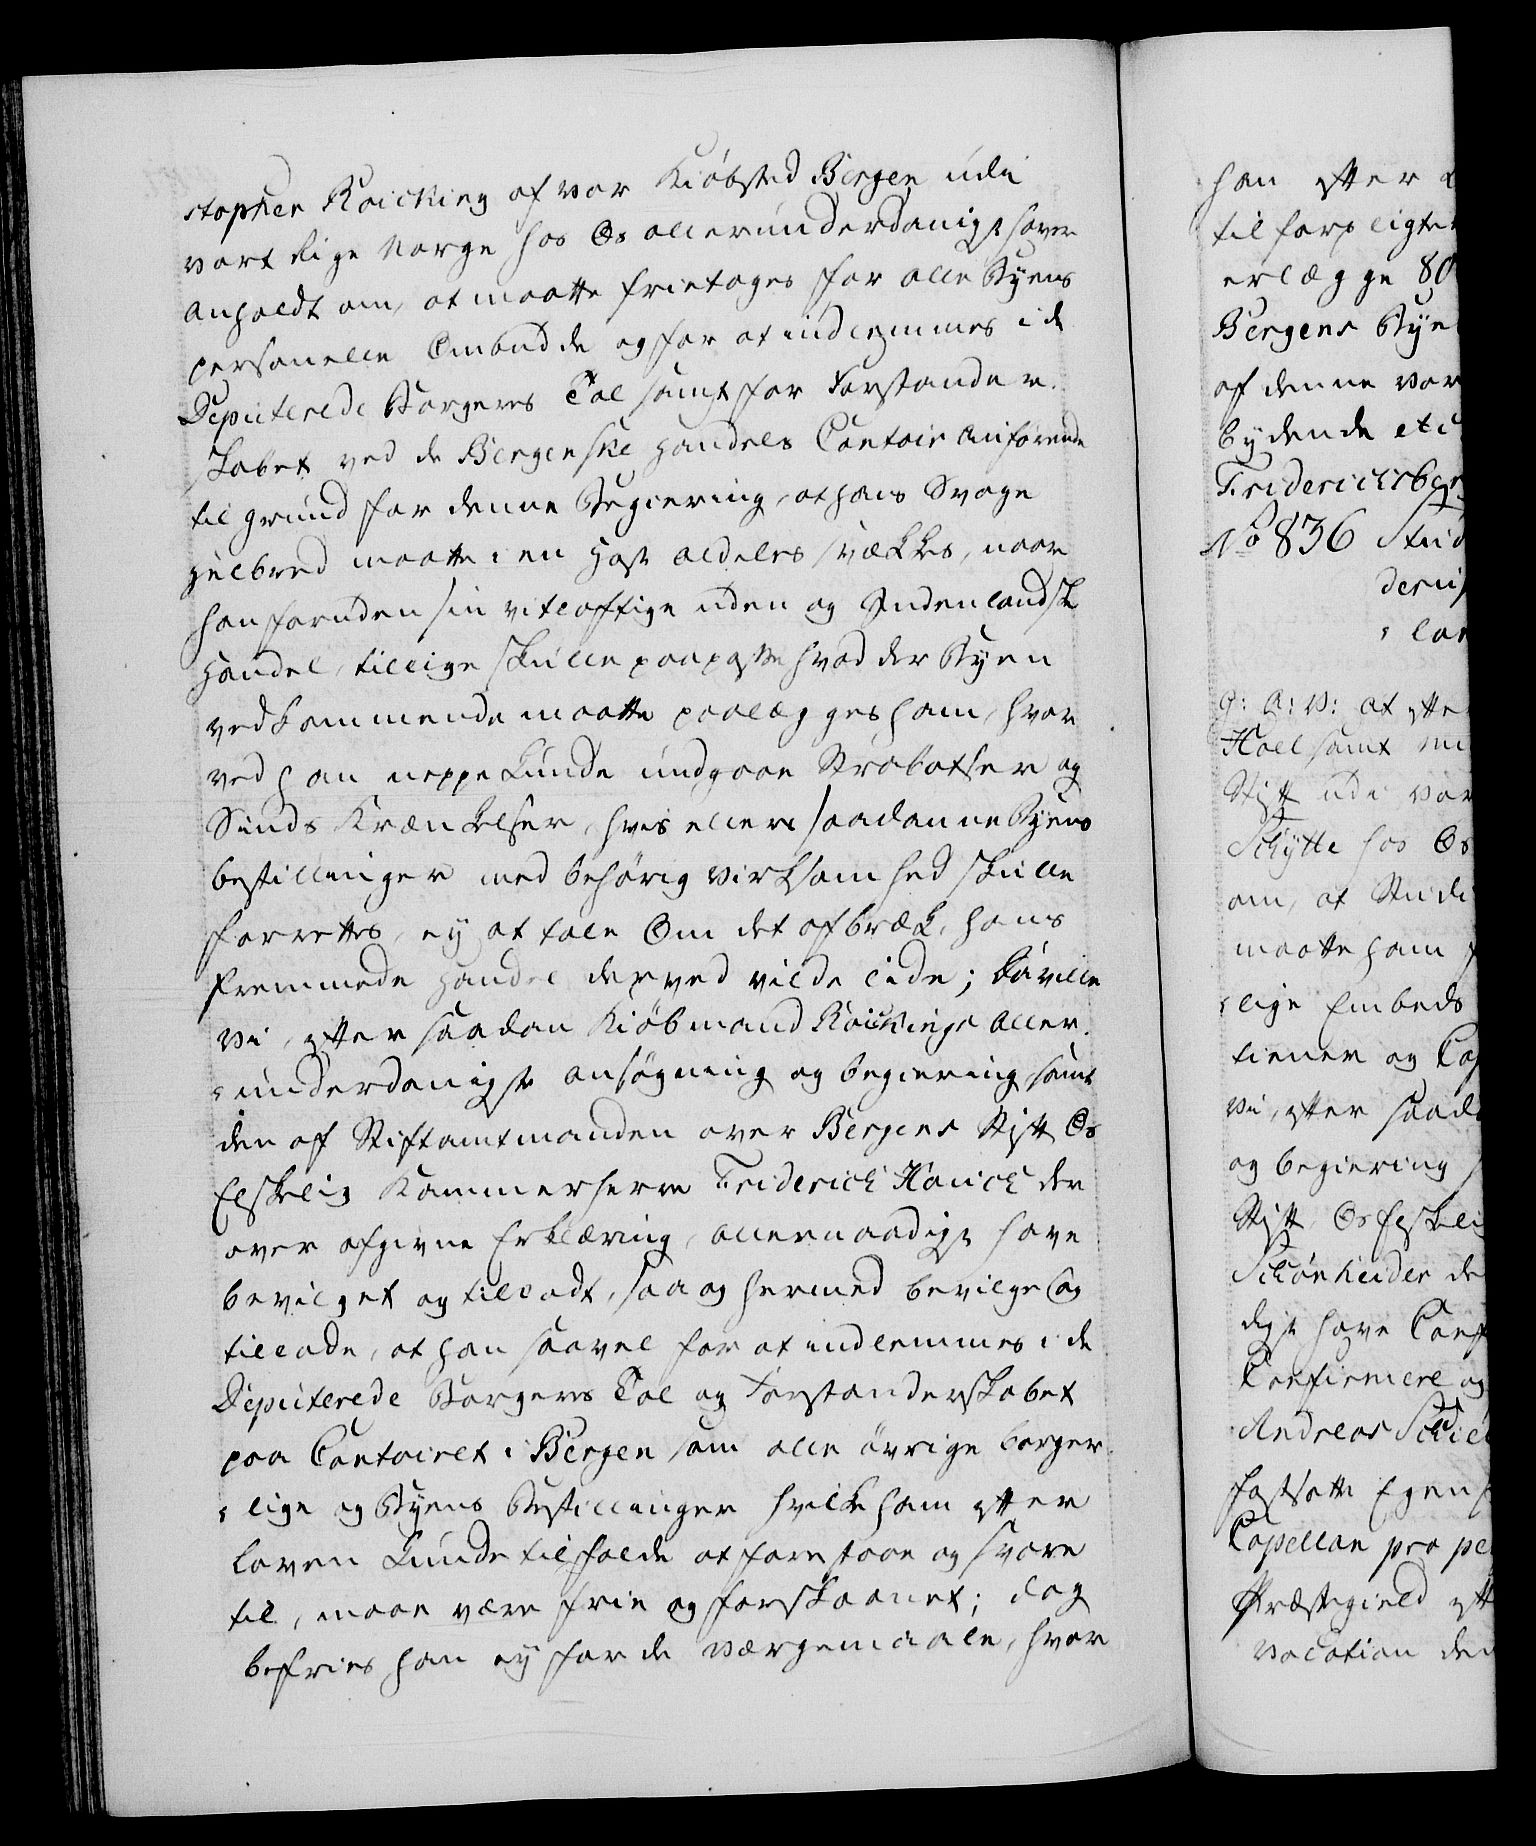 stopher Kaicking af vor Kiöbsted Bergen udi
vort Rige Norge hos Os allerunderdanigst haver
anholdt om, at maatte frietages for alle Byens
personelle Ombudde og for at indlemmes i de
Deputerede Borgeres Tal samt for Forstander-
skabet ved de Bergenske Handels Contoir Anförende
til grund for denne Begiering, at hans Svage
Helbred maatte i en Hast aldeles svækkes, naar
han foruden sin vitløftige uden og Indenlandske
Handel, tillige skulle paapasse hvad der Byen
vedkommende maatte paalægges ham, hvor
ved han neppe kunde undgaae Strabatser og
Sinds Krænkelser, hvis ellers saadanne Byens
bestillinger med behörig Virksomhed skulle
forrettes, ey at tale Om det afbræk, hans
fremmede Handel derved vilde lide; Da ville
Vi, efter saadan Kiöbmand Kaickings Aller-
underdanigste ansögning og begiering samt
den af Stiftamtmanden over Bergens Stift Os
Elskelig Kammerherre Friderich Hauch der
over afgivne Erklæring, allernaadigst have
bevilget og tilladt, saa og hermed bevilge og
tillade, at han saavel for at indlemmes i de
Deputerede Borgeres Tal og Forstanderskabet
paa Contoiret i Bergen, som alle övrige borger-
lige og Byens Bestillinger hvilke ham efter
Loven kunde tilfalde at forestaae og svare
til, maae være frie og forskaanet; dog
befries han ey for de Værgemaale, hvor
han efter
til forpligte
erlægge 80
Bergens Bye
af denne vor
bydende etc
Fridericksber
No 836 Stud
G: A: V: At efter
Hoel samt
Stift udi vor
Schytte hos Os
om, at Studi
maatte ham
lige Embeds
tiener og Cap
Vi, efter saad
og begiering
Stift, Os Elskeli
Schönheider de
digst have
Confirmere og
Andreas
fastsatte Egen
Capellan pro pe
Præstegield eft
Vocation den